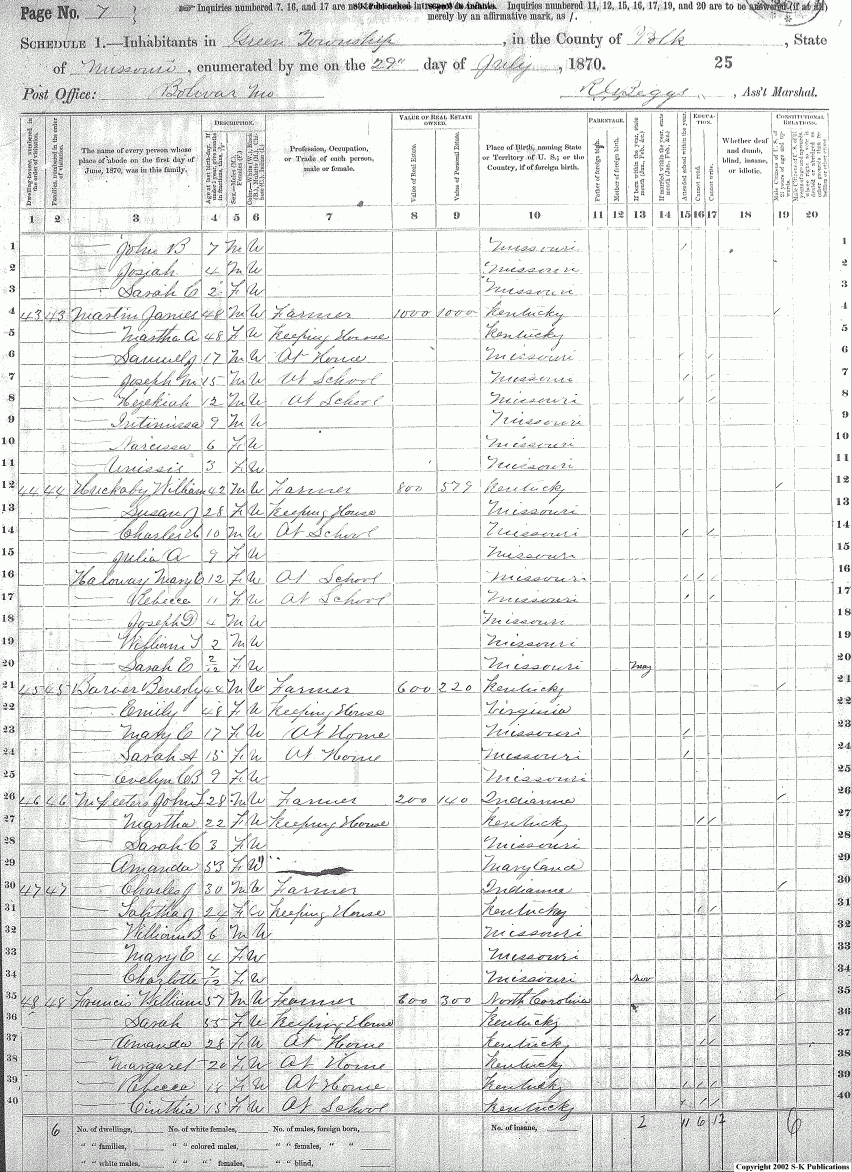 Page No. 7
Inquiries numbered 7, 16, and 17 are not to be asked in respect to infants. Inquiries numbered 11, 12, 15, 16, 17, 19, and 20 are to be answered (if at all)
merely by an affirmative mark, as /.
SCHEDULE 1.—Inhabitants in Green Township, in the County of Polk, State
of Missouri, enumerated by me on the 29" day of July, 1870. 25
Post Office: Bolivar Mo Ass't Marshal.
DESCRIPTION. VALUE OF REAL ESTATE OWNED. PARENTAGE. EDUCATION. CONSTITUTIONAL RELATIONS.
Dwelling-houses, numbered in the order of visitation. Families, numbered in the order of visitation. The name of every person whose place of abode on the first day of June, 1870, was in this family. Profession, Occupation, or Trade of each person, male or female. Value of Real Estate. Value of Personal Estate. Place of Birth, naming State or Territory of U. S.; or the Country, if of foreign birth. Father of foreign birth. Mother of foreign birth. Attended school within the year. Cannot read. Cannot write. Whether deaf and dumb, blind, insane, or idiotic.
1 2 3 4 5 6 7 8 9 10 11 12 13 14 15 16 17 18 19 20
1 — John B 7 M W Missouri / 1
2 — Josiah 4 M W Missouri 2
3 — Sarah C 2 F W Missouri 3
4 43 43 Martin James 48 M W Farmer 1000 1000 Kentucky / 4
5 — Martha A 48 F W Keeping House Kentucky 5
6 — Samuel J 17 M W At Home Missouri / / 6
7 — Joseph M 15 M W At School Missouri / / 7
8 — Hezekiah 12 M W At School Missouri / / 8
9 — 9 M W Missouri 9
10 — Narcissa 6 F W Missouri 10
11 — 3 F W Missouri 11
12 44 44 Huckaby William 42 M W Farmer 800 579 Kentucky / 12
13 — Susan J 28 F W Keeping House Missouri 13
14 — Charles 10 M W At School Missouri / / 14
15 — Julia A 9 F W Missouri 15
16 Haloway Mary E 12 F W At School Missouri / / / 16
17 — Rebecca 11 F W At School Missouri / / 17
18 — Joseph D 4 M W Missouri 18
19 — William T 2 M W Missouri 19
20 — Sarah E 2/12 F W Missouri May 20
21 45 45 Barver Beverly 44 M W Farmer 600 220 Kentucky / 21
22 — Emily 48 F W Keeping House Virginia 22
23 — Mary E 17 F W At Home Missouri / 23
24 — Sarah A 15 F W At Home Missouri / 24
25 — Evelyn C B 9 F W Missouri 25
26 46 46 McPeeters John T 28 M W Farmer 200 140 Indianna / 26
27 — Martha 22 F W Keeping House Kentucky / / 27
28 — Sarah C 3 F W Missouri 28
29 Amanda 53 F W Maryland 29
30 47 47 — Charles J 30 M W Farmer Indianna / 30
31 — Talitha J 24 F W Keeping House Kentucky / / 31
32 — William B 6 M W Missouri 32
33 — Mary E 4 F W Missouri 33
34 — Charlotte 7/12 F W Missouri Nov 34
35 48 48 Francis William 57 M W Farmer 600 300 North Carolina / 35
36 — Sarah 55 F W Keeping House Kentucky / 36
37 — Amanda 28 F W At Home Kentucky / / 37
38 — Margaret 20 F W At Home Kentucky 38
39 — Rebecca 18 F W At Home Kentucky / / / 39
40 — Cinthia 15 F W At School Kentucky / / / 40
6 No. of dwellings, No. of white females, No. of males, foreign born, No. of insane, 2 11 6 17 6
" " families, " " colored males, " " females, " "
" " white males, " " " females, " " blind,
Copyright 2002 S-K Publications